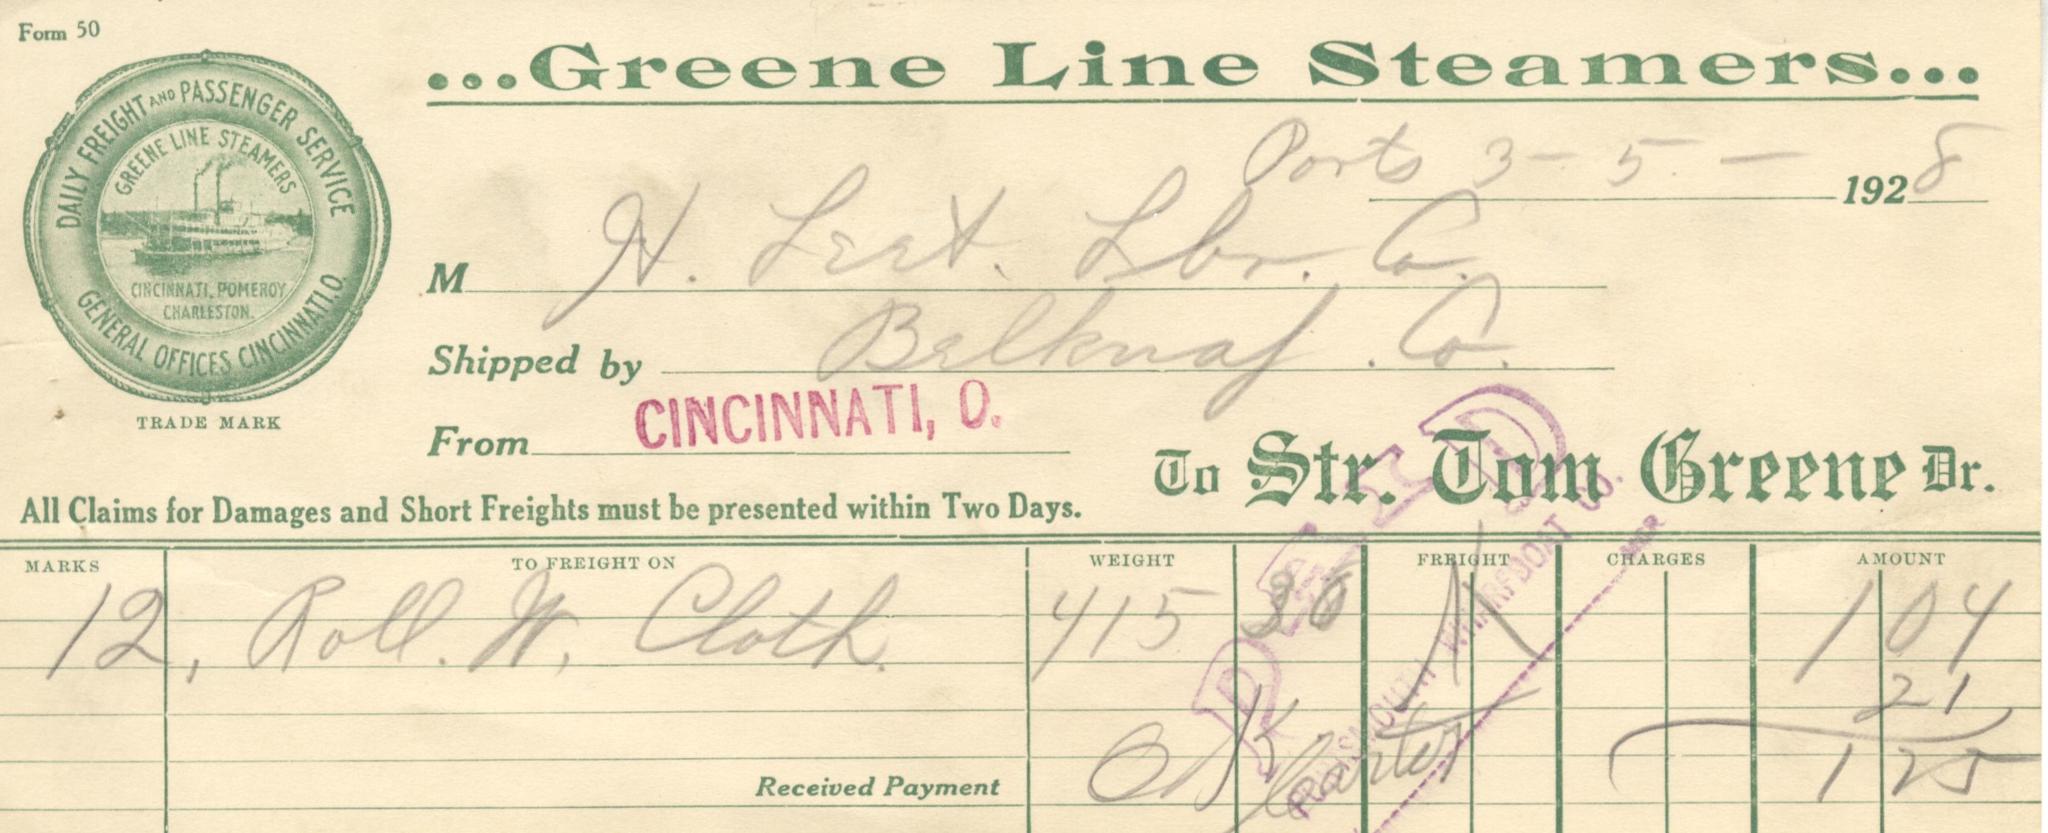 Form 50
DAILY FREIGHT AND PASSENGER SERVICE
GREENE LINE STEAMERS
CINCINNATI, POMEROY
CHARLESTON.
GENERAL OFFICES CINCINNATI.O.
TRADE MARK
...Greene Line Steamers...
Ports 3 - 5 - 1928
M H. Leet. Lbr. Co.
Shipped by Belknap. Co.
From CINCINNATI, O.
To Str. Tom Greene Dr.
All Claims for Damages and Short Freights must be presented within Two Days.
MARKS TO FREIGHT ON WEIGHT FREIGHT CHARGES AMOUNT
12, Roll. W. Cloth. 415 1 04
21
1 25
Received Payment OK
PAID
PORTSMOUTH WHARFBOAT CO.
MGR